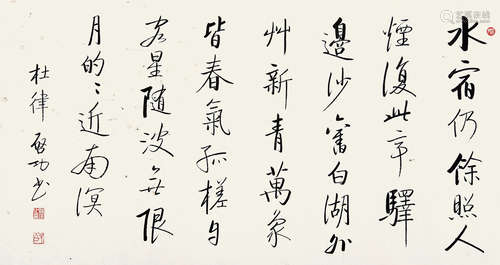 水宿仍餘照人
煙復此亭驛
邊沙舊白湖外
艸新青萬象
皆春氣孤槎自
客星隨波無限
月的〻近南溟
杜律 啟功書